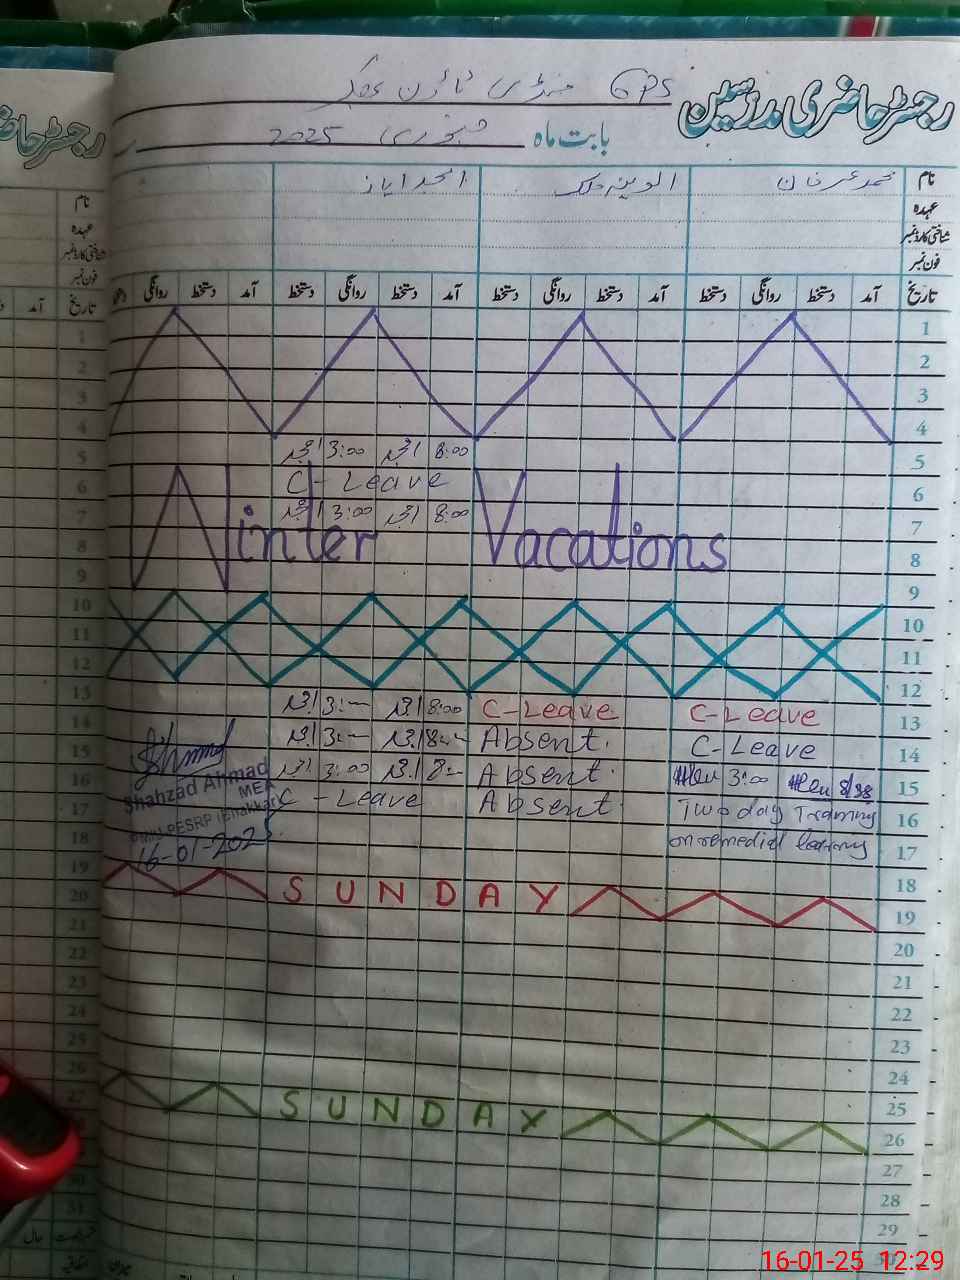 رجسٹر حاضری مدرسین
GPS منڈی ٹاؤن بھکر
بابت ماہ جنوری 2025
نام محمد عرفان الوینہ ملک امجد ایاز
عہدہ
شناختی کارڈ نمبر
فون نمبر
تاریخ آمد دستخط روانگی دستخط آمد دستخط روانگی دستخط آمد دستخط روانگی دستخط آمد دستخط روانگی
1
2
3
4
5 8:00 3:00
6 C - Leave
7 8:00 3:00
Winter Vacations
8
9
10
11
12
13 C-Leave C-Leave 8:00 3:—
14 C-Leave Absent. 8:— 3:—
15 8/38 3:00 Absent. 8:— 3:00
16 Two day Training Absent. C - Leave
17 on remedial
Shahzad Ahmad
MEA
PESRP (Bhakkar)
16-01-2025
18 SUNDAY
19
20
21
22
23
24
25 SUNDAY
26
27
28
29
رجسٹر
نام
عہدہ
شناختی کارڈ نمبر
فون نمبر
تاریخ آمد
1
2
3
4
5
6
7
8
9
10
11
12
13
14
15
16
17
18
19
20
21
22
23
24
25
26
27
30
31
16-01-25 12:29